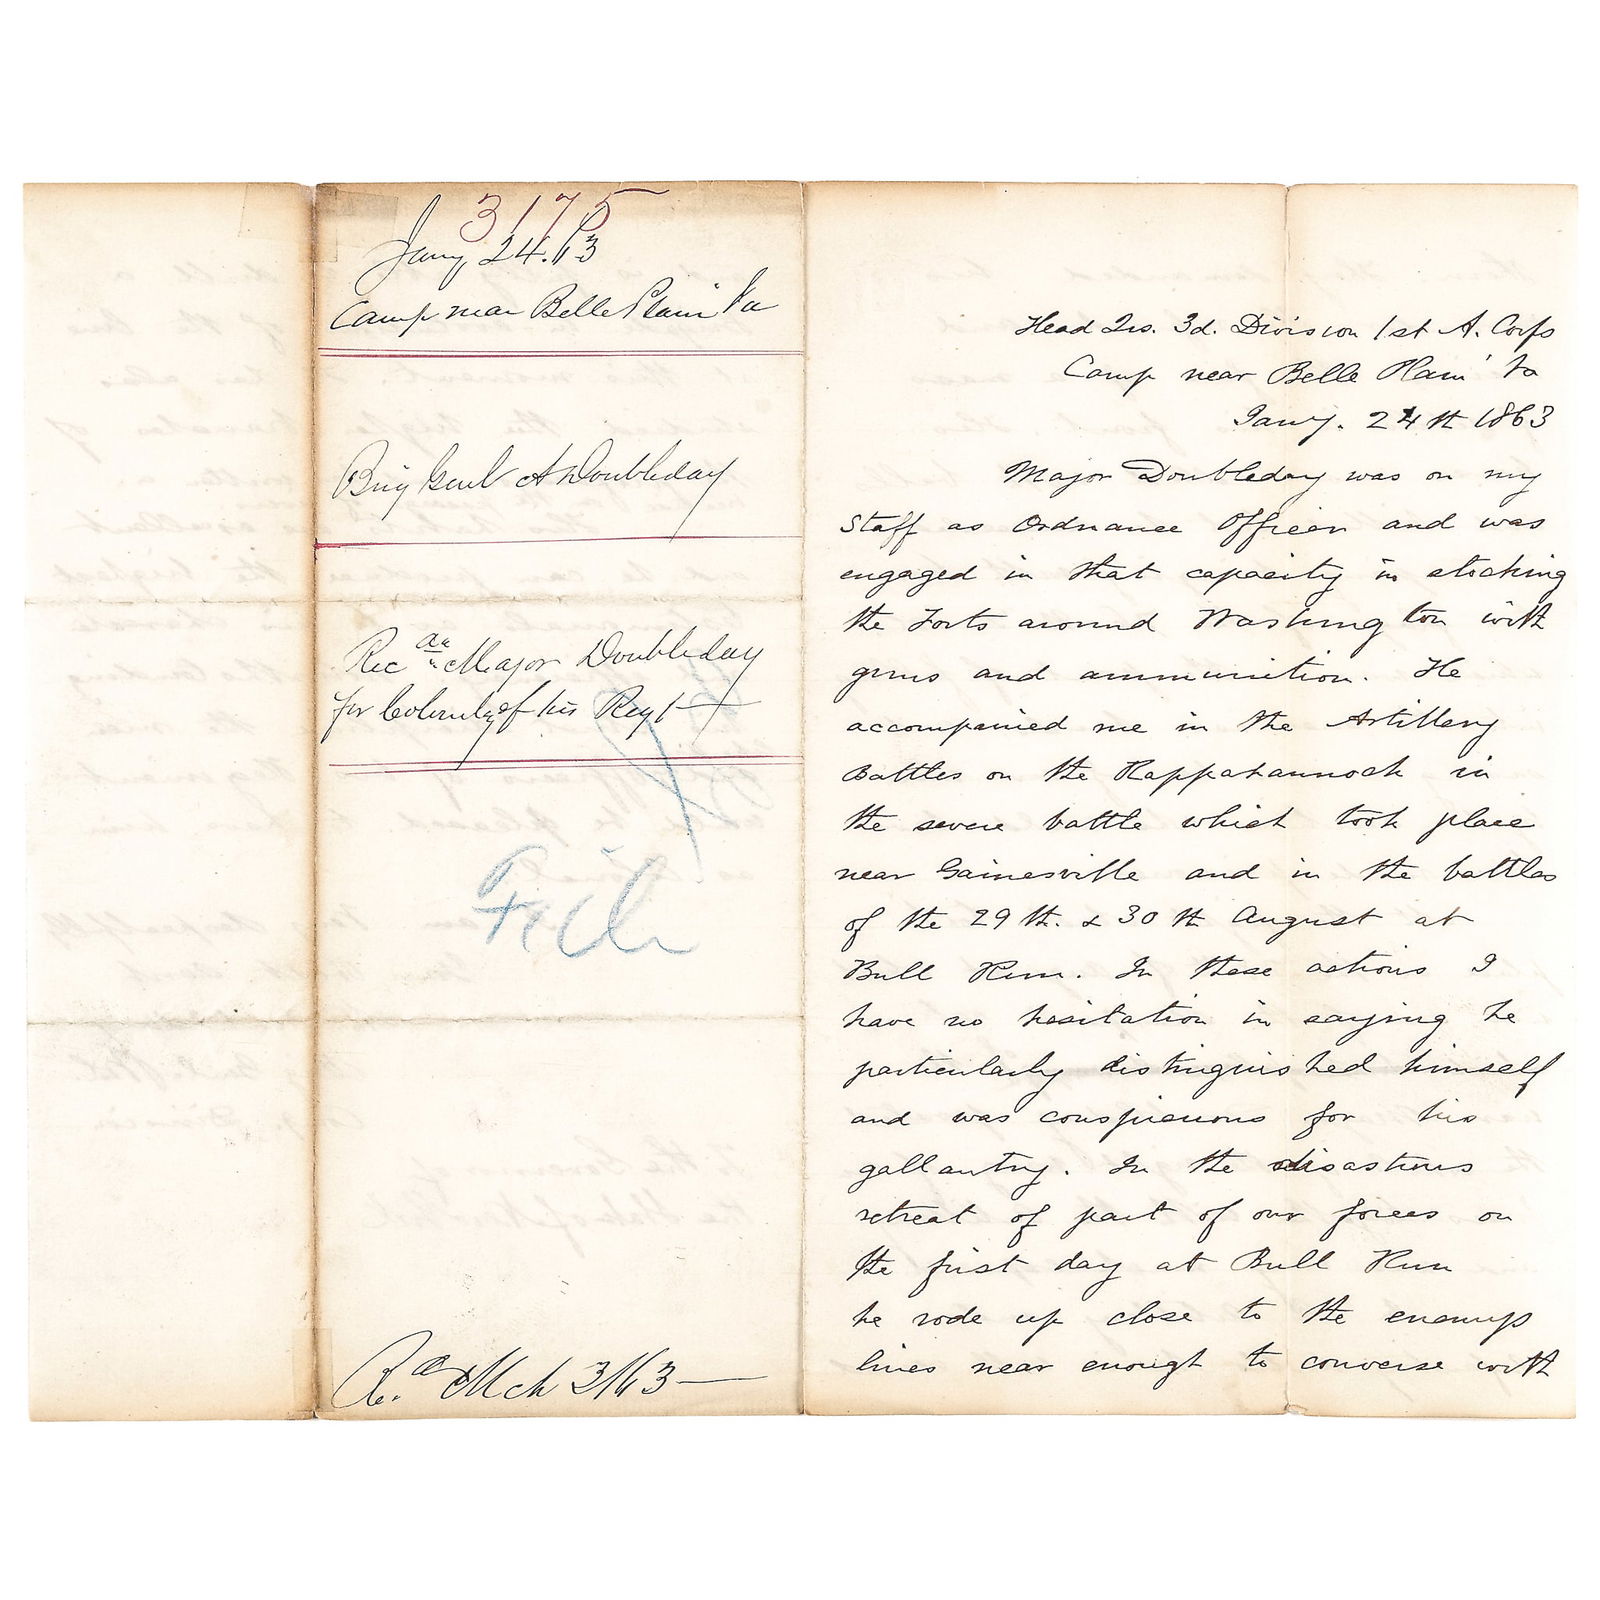 3175
Jany 24. 63
Camp near Belle Plain Va
Brig Genl A Doubleday
Recn Major Doubleday
for Colonelcy of his Regt
File
Rec Mch 3/63
Head Qrs. 3d. Division 1st A. Corps
Camp near Belle Plain Va
Jany. 24th 1863
Major Doubleday was on my
Staff as Ordnance Officer and was
engaged in that capacity in stocking
the Forts around Washington with
guns and ammunition. He
accompanied me in the Artillery
Battles on the Rappahannock in
the severe battle which took place
near Gainesville and in the battles
of the 29th. & 30th August at
Bull Run. In these actions I
have no hesitation in saying he
particularly distinguished himself
and was conspicuous for his
gallantry. In the disastrous
retreat of part of our forces on
the first day at Bull Run
he rode up close to the enemys
lines near enough to converse with